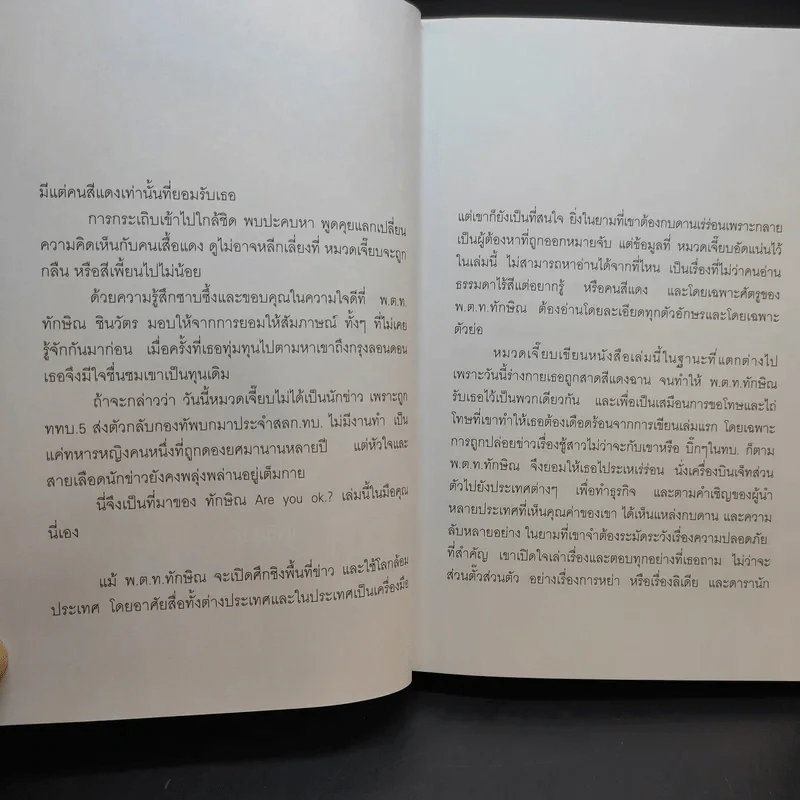 มีแต่คนสีแดงเท่านั้นที่ยอมรับเธอ
การกระเถิบเข้าไปใกล้ชิด พบปะคบหา พูดคุยแลกเปลี่ยน
ความคิดเห็นกับคนเสื้อแดง ดูไม่อาจหลีกเลี่ยงที่ หมวดเจี๊ยบจะถูก
กลืน หรือสีเพี้ยนไปไม่น้อย
ด้วยความรู้สึกซาบซึ้งและขอบคุณในความใจดีที่ พ.ต.ท.
ทักษิณ ชินวัตร มอบให้จากการยอมให้สัมภาษณ์ ทั้งๆ ที่ไม่เคย
รู้จักกันมาก่อน เมื่อครั้งที่เธอทุ่มทุนไปตามหาเขาถึงกรุงลอนดอน
เธอจึงมีใจชื่นชมเขาเป็นทุนเดิม
ถ้าจะกล่าวว่า วันนี้หมวดเจี๊ยบไม่ได้เป็นนักข่าว เพราะถูก
ททบ.5 ส่งตัวกลับกองทัพบกมาประจำสลก.ทบ. ไม่มีงานทำ เป็น
แค่ทหารหญิงคนหนึ่งที่ถูกดองยศมานานหลายปี แต่หัวใจและ
สายเลือดนักข่าวยังคงพลุ่งพล่านอยู่เต็มกาย
นี่จึงเป็นที่มาของ ทักษิณ Are you ok.? เล่มนี้ในมือคุณ
นี่เอง
แม้ พ.ต.ท.ทักษิณ จะเปิดศึกชิงพื้นที่ข่าว และใช้โลกล้อม
ประเทศ โดยอาศัยสื่อทั้งต่างประเทศและในประเทศเป็นเครื่องมือ
แต่เขาก็ยังเป็นที่สนใจ ยิ่งในยามที่เขาต้องกบดานเร่ร่อนเพราะกลาย
เป็นผู้ต้องหาที่ถูกออกหมายจับ แต่ข้อมูลที่ หมวดเจี๊ยบอัดแน่นไว้
ในเล่มนี้ ไม่สามารถหาอ่านได้จากที่ไหน เป็นเรื่องที่ไม่ว่าคนอ่าน
ธรรมดาไร้สีแต่อยากรู้ หรือคนสีแดง และโดยเฉพาะศัตรูของ
พ.ต.ท.ทักษิณ ต้องอ่านโดยละเอียดทุกตัวอักษรและโดยเฉพาะ
ตัวย่อ
หมวดเจี๊ยบเขียนหนังสือเล่มนี้ในฐานะที่แตกต่างไป
เพราะวันนี้ร่างกายเธอถูกสาดสีแดงฉาน จนทำให้ พ.ต.ท.ทักษิณ
รับเธอไว้เป็นพวกเดียวกัน และเพื่อเป็นเสมือนการขอโทษและไถ่
โทษที่เขาทำให้เธอต้องเดือดร้อนจากการเขียนเล่มแรก โดยเฉพาะ
การถูกปล่อยข่าวเรื่องชู้สาวไม่ว่าจะกับเขาหรือ บิ๊กๆในทบ. ก็ตาม
พ.ต.ท.ทักษิณ จึงยอมให้เธอไประเหเร่ร่อน นั่งเครื่องบินเจ็ทส่วน
ตัวไปยังประเทศต่างๆ เพื่อทำธุรกิจ และตามคำเชิญของผู้นำ
หลายประเทศที่เห็นคุณค่าของเขา ได้เห็นแหล่งกบดาน และความ
ลับหลายอย่าง ในยามที่เขาจำต้องระมัดระวังเรื่องความปลอดภัย
ที่สำคัญ เขาเปิดใจเล่าเรื่องและตอบทุกอย่างที่เธอถาม ไม่ว่าจะ
ส่วนตั๊วส่วนตัว อย่างเรื่องการหย่า หรือเรื่องลิเดีย และดารานัก